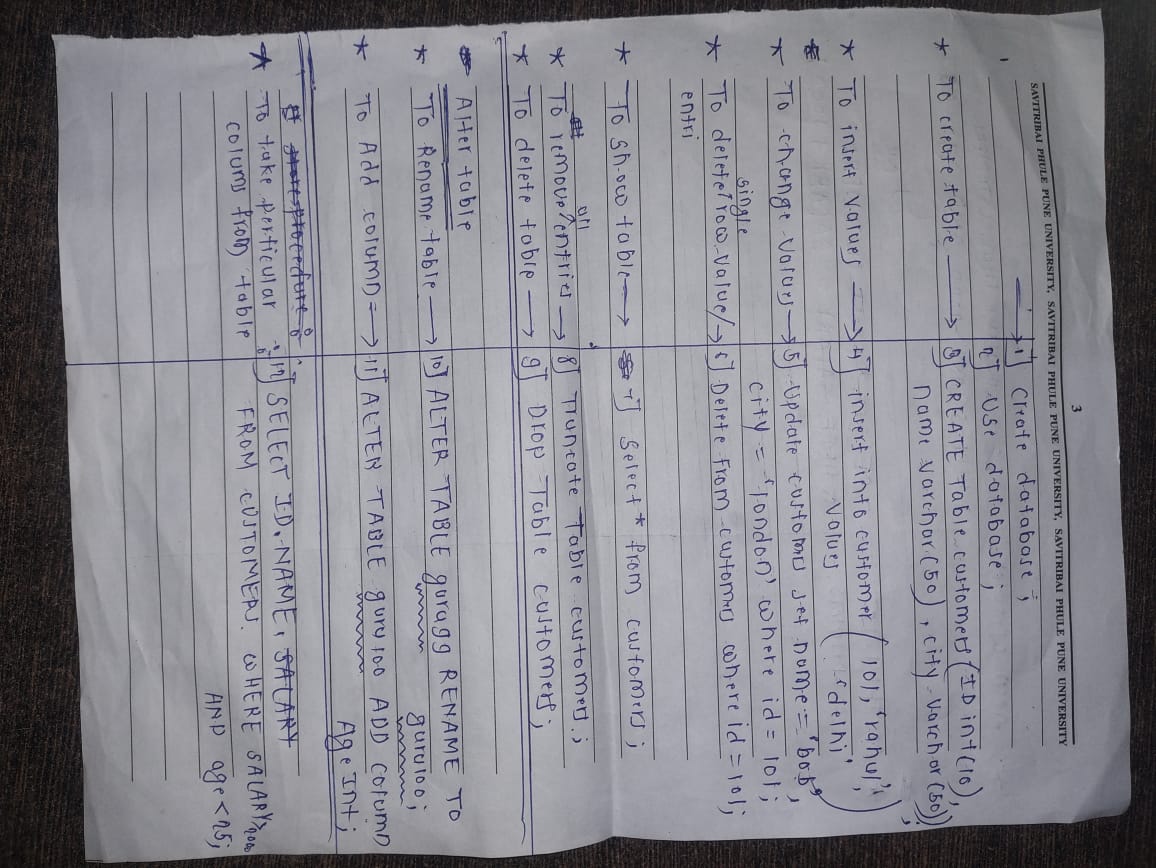 3
SAVITRIBAI PHULE PUNE UNIVERSITY, SAVITRIBAI PHULE PUNE UNIVERSITY, SAVITRIBAI PHULE PUNE UNIVERSITY
→ 1] Create database;
2] Use database;
* To create table → 3] CREATE Table customers (ID int(10),
name varchar(50), city varchar(50));
* To insert values → 4] insert into customer (101, 'rahul',
values 'delhi')
* To change values → 5] Update customers set name = 'bob',
city = 'london' where id = 101;
single
* To delete row value/ → 6] Delete from customers where id = 101;
entri
* To show table → 7] Select * from customers;
all
* To remove entries → 8] Truncate Table customers;
* To delete table → 9] Drop Table customers;
Alter table
* To Rename table → 10] ALTER TABLE guragg RENAME TO
guru100;
* To Add column = → 11] ALTER TABLE guru100 ADD column
Age Int;
* To take perticular 12] SELECT ID, NAME, SALARY
colums from table FROM CUSTOMERS WHERE SALARY>
AND age < 25;